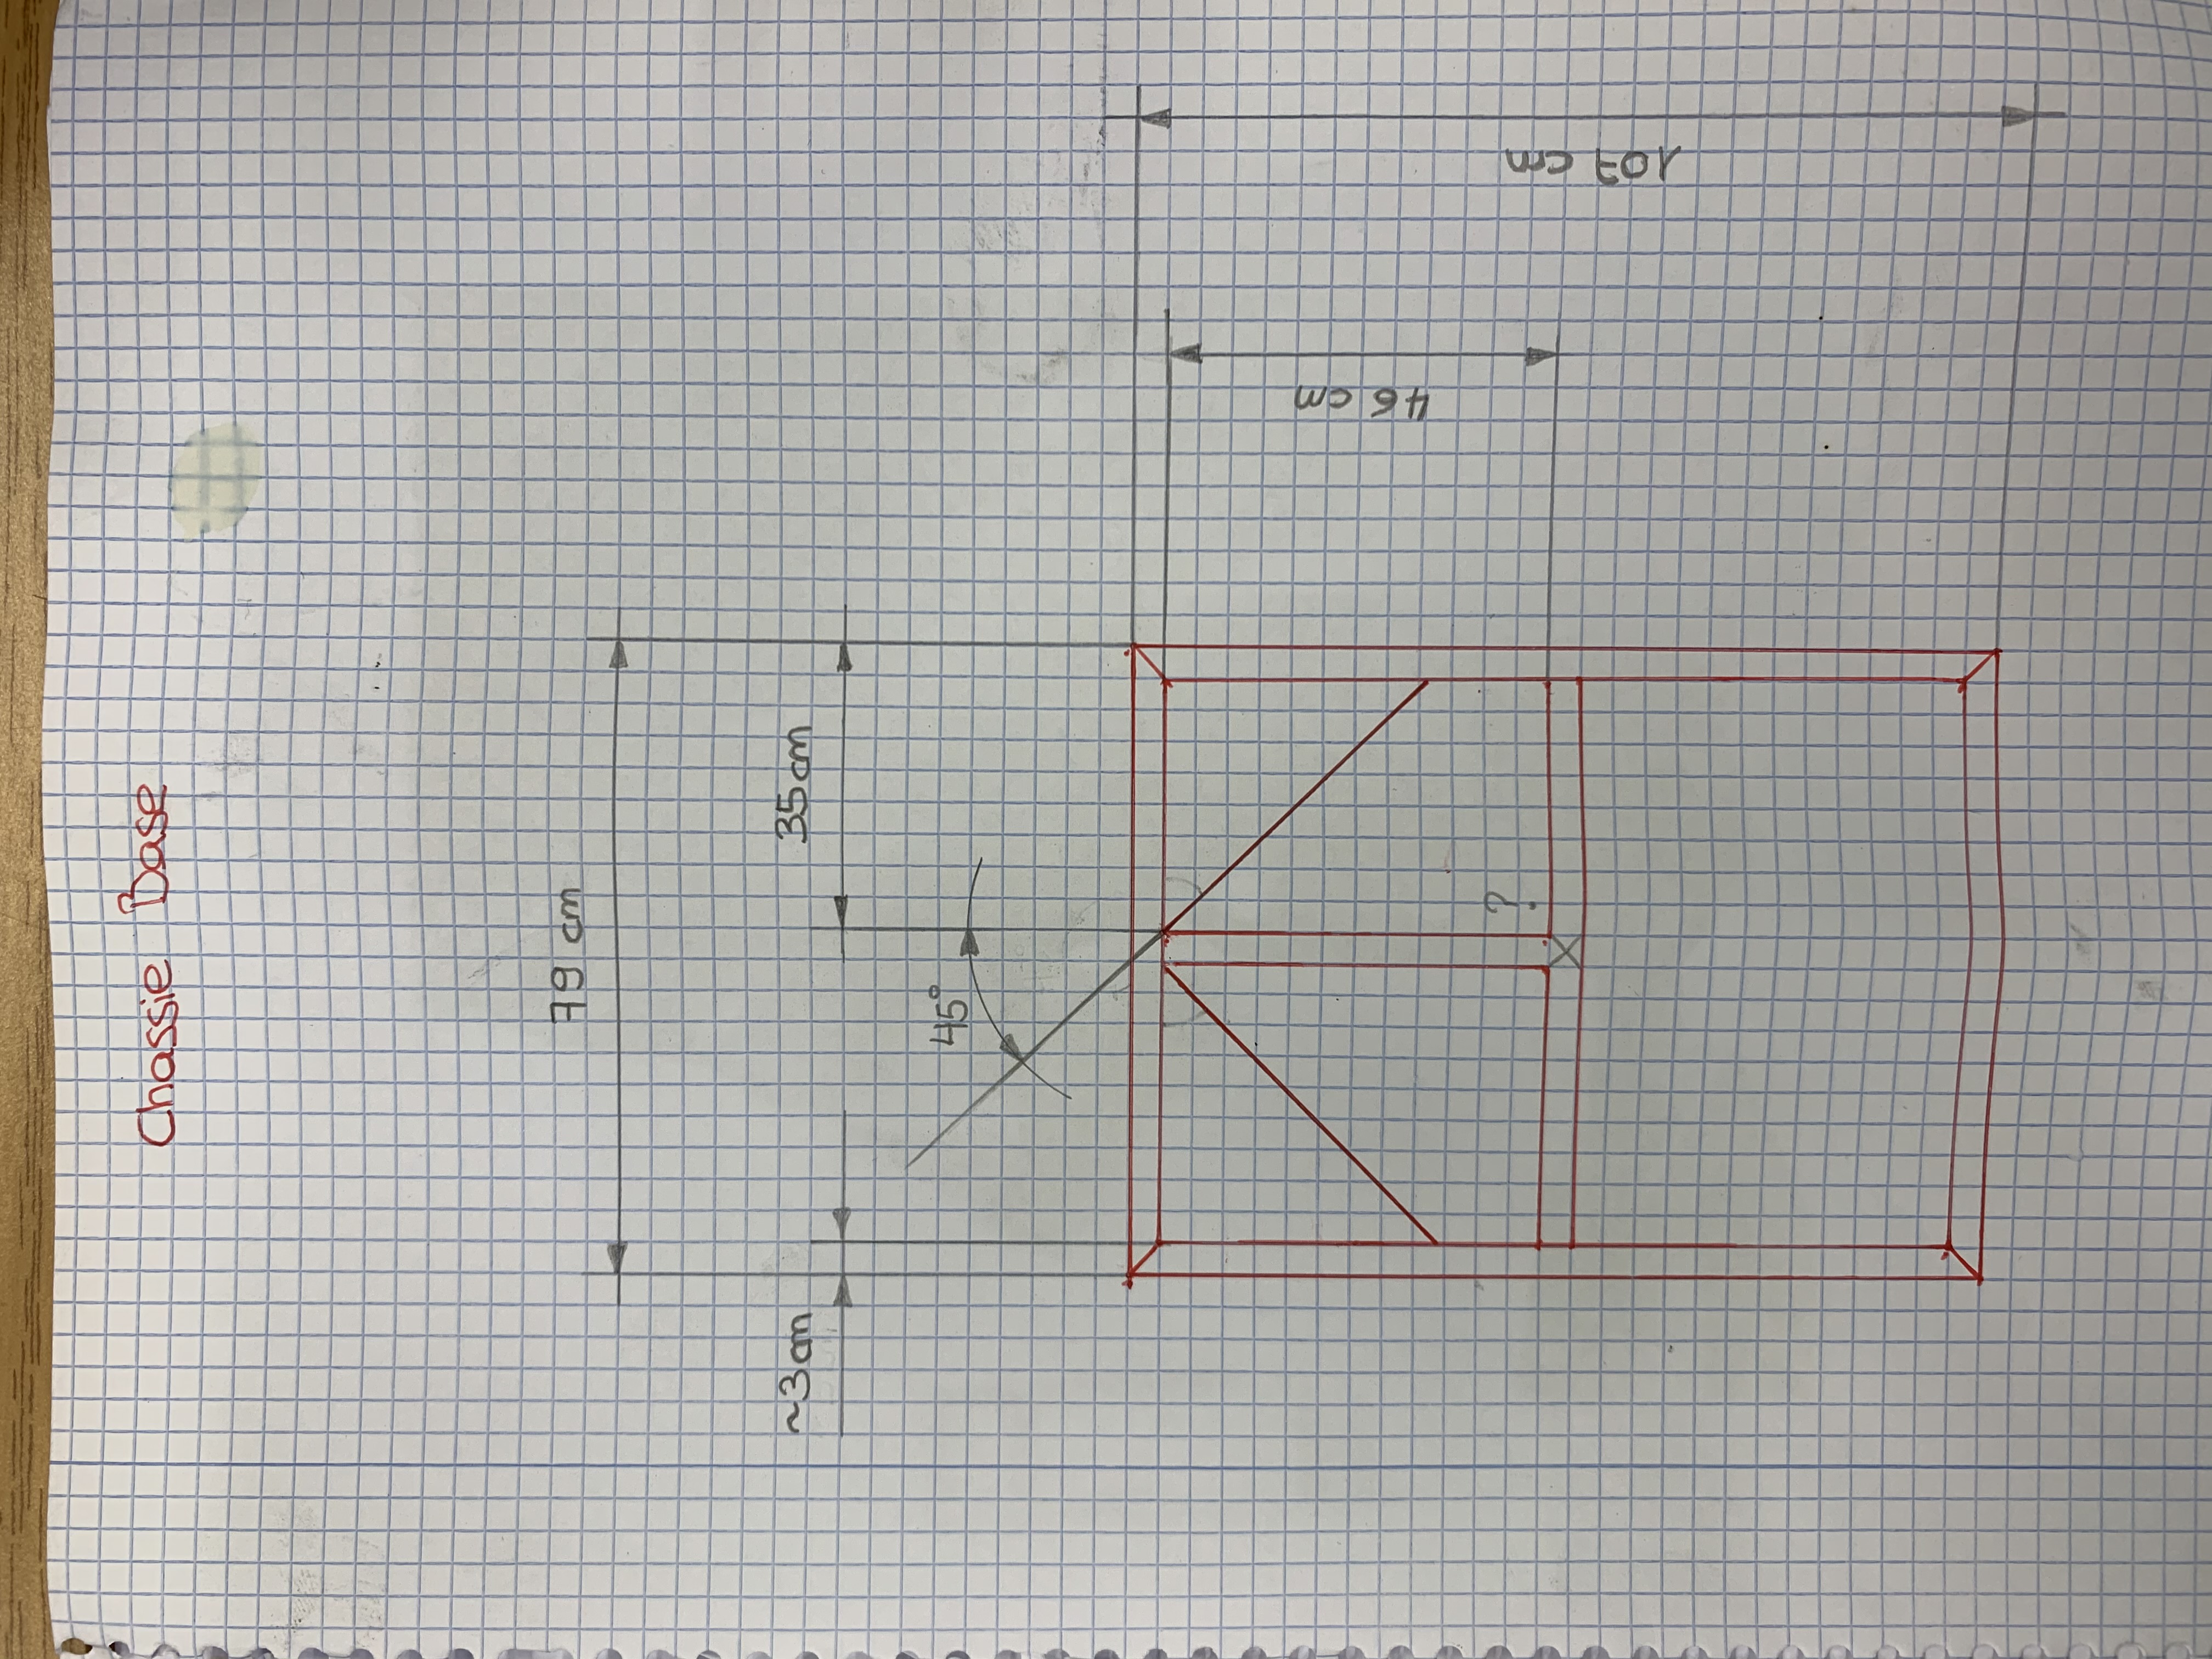 Chassie Base
79 cm
~3cm
35cm
45°
46 cm
?
107 cm